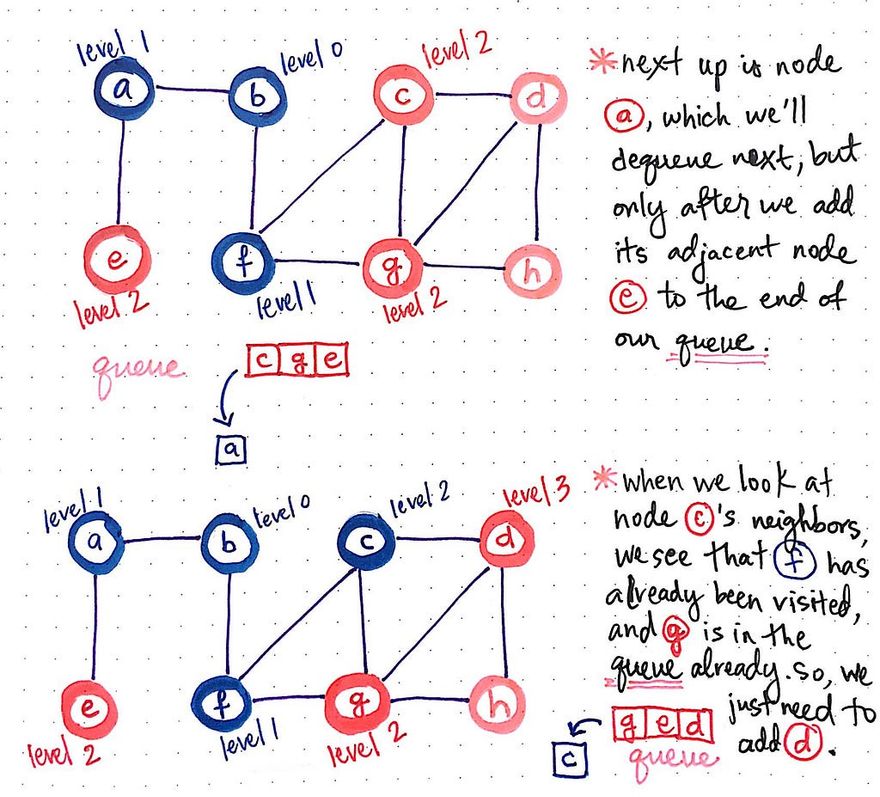 level 1
level 0
level 2
a
b
c
d
e
f
g
h
level 2
level 1
level 2
queue
c g e
a
* next up is node
a, which we'll
dequeue next, but
only after we add
its adjacent node
e to the end of
our queue.
level 1
level 0
level 2
level 3
a
b
c
d
e
f
g
h
level 2
level 1
level 2
* when we look at
node c's neighbors,
we see that f has
already been visited,
and g is in the
queue already. so, we
just need to
add d.
g e d
c
queue